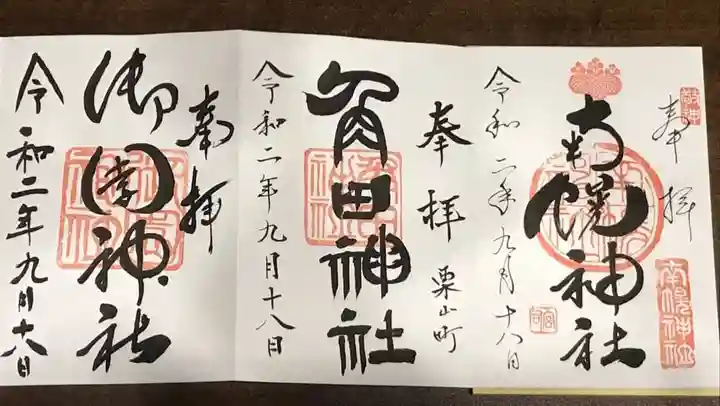 敬神
奉拝
南幌神社
南幌神社
令和二年九月十八日
宮司
奉拝 栗山町
角田神社
令和二年九月十八日
奉拝
御園神社
令和二年九月十八日